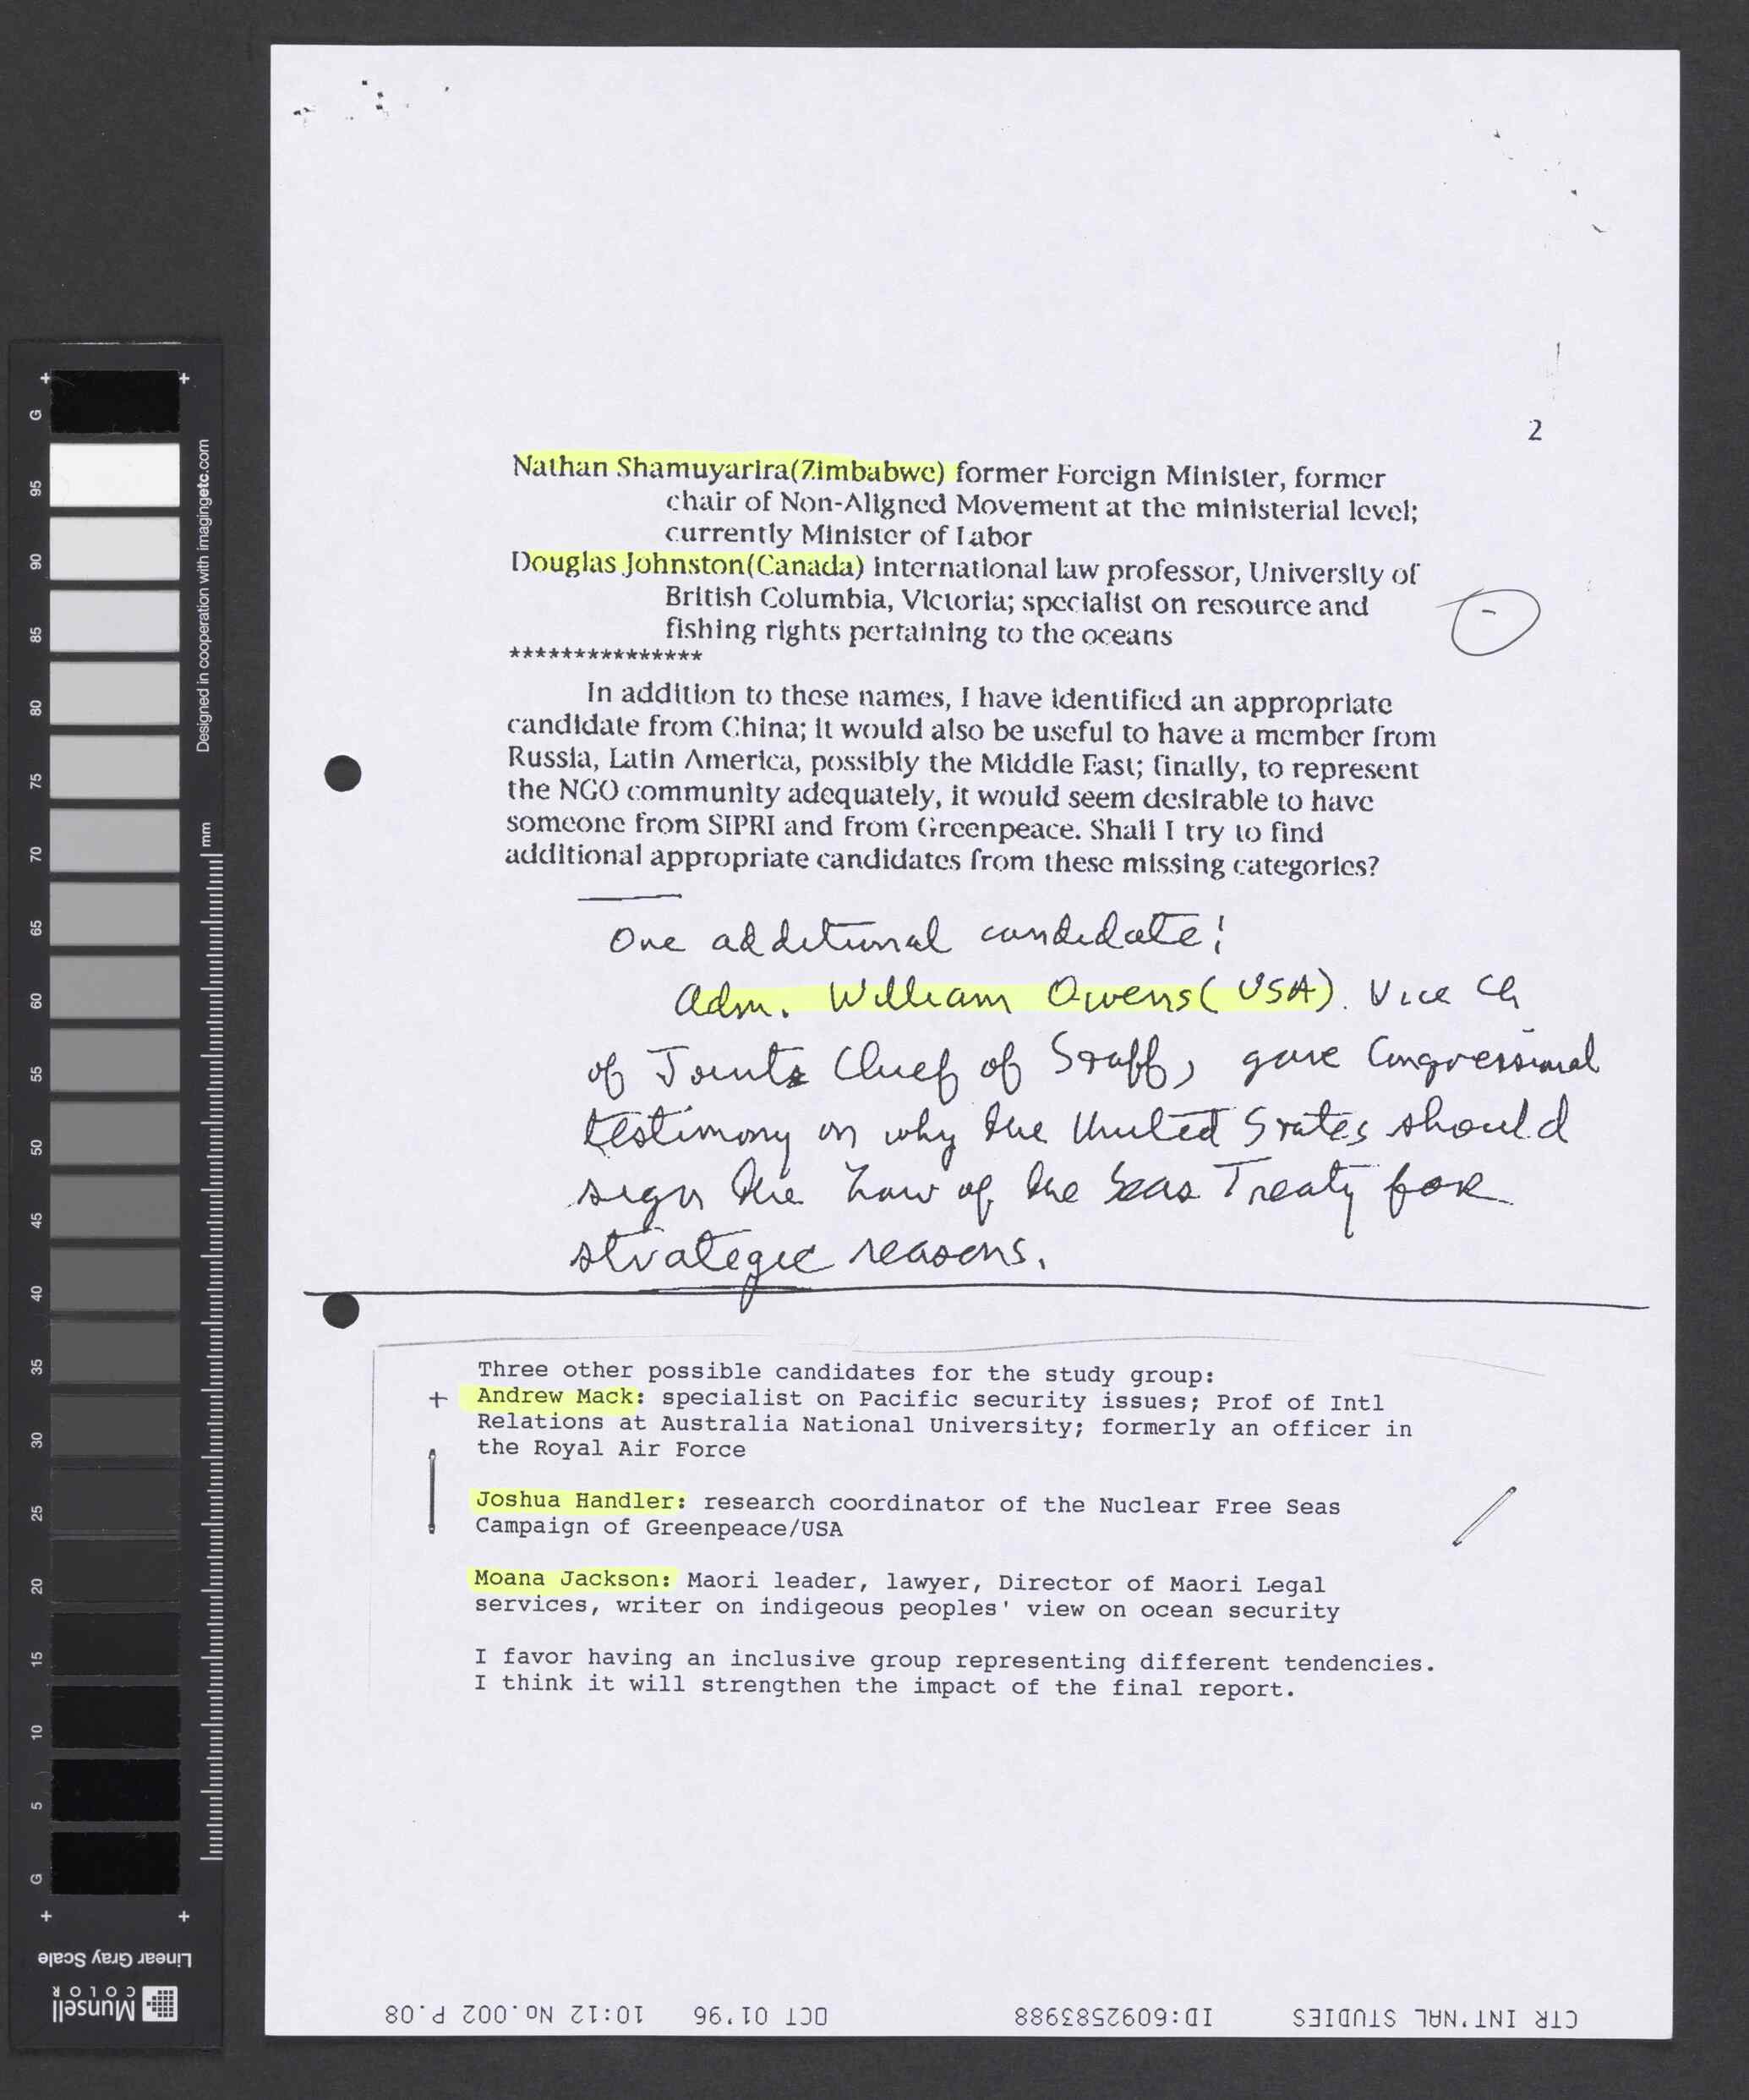 2
Nathan Shamuyarira(Zimbabwe) former Foreign Minister, former
chair of Non-Aligned Movement at the ministerial level;
currently Minister of Labor
Douglas Johnston(Canada) international law professor, University of
British Columbia, Victoria; specialist on resource and
fishing rights pertaining to the oceans
-
***************
In addition to these names, I have identified an appropriate
candidate from China; it would also be useful to have a member from
Russia, Latin America, possibly the Middle East; finally, to represent
the NGO community adequately, it would seem desirable to have
someone from SIPRI and from Greenpeace. Shall I try to find
additional appropriate candidates from these missing categories?
One additional candidate:
Adm. William Owens (USA). Vice Ch
of Joint Chief of Staff, gave Congressional
testimony on why the United States should
sign the Law of the Seas Treaty for
strategic reasons.
Three other possible candidates for the study group:
+ Andrew Mack: specialist on Pacific security issues; Prof of Intl
Relations at Australia National University; formerly an officer in
the Royal Air Force
Joshua Handler: research coordinator of the Nuclear Free Seas
Campaign of Greenpeace/USA
Moana Jackson: Maori leader, lawyer, Director of Maori Legal
services, writer on indigeous peoples' view on ocean security
I favor having an inclusive group representing different tendencies.
I think it will strengthen the impact of the final report.
CTR INT'NAL STUDIES ID:6092583988 OCT 01'96 10:12 No.002 P.08
G 95 90 85 80 75 70 65 60 55 50 45 40 35 30 25 20 15 10 5 G
Designed in cooperation with imagingetc.com
mm
Linear Gray Scale
Munsell
COLOR